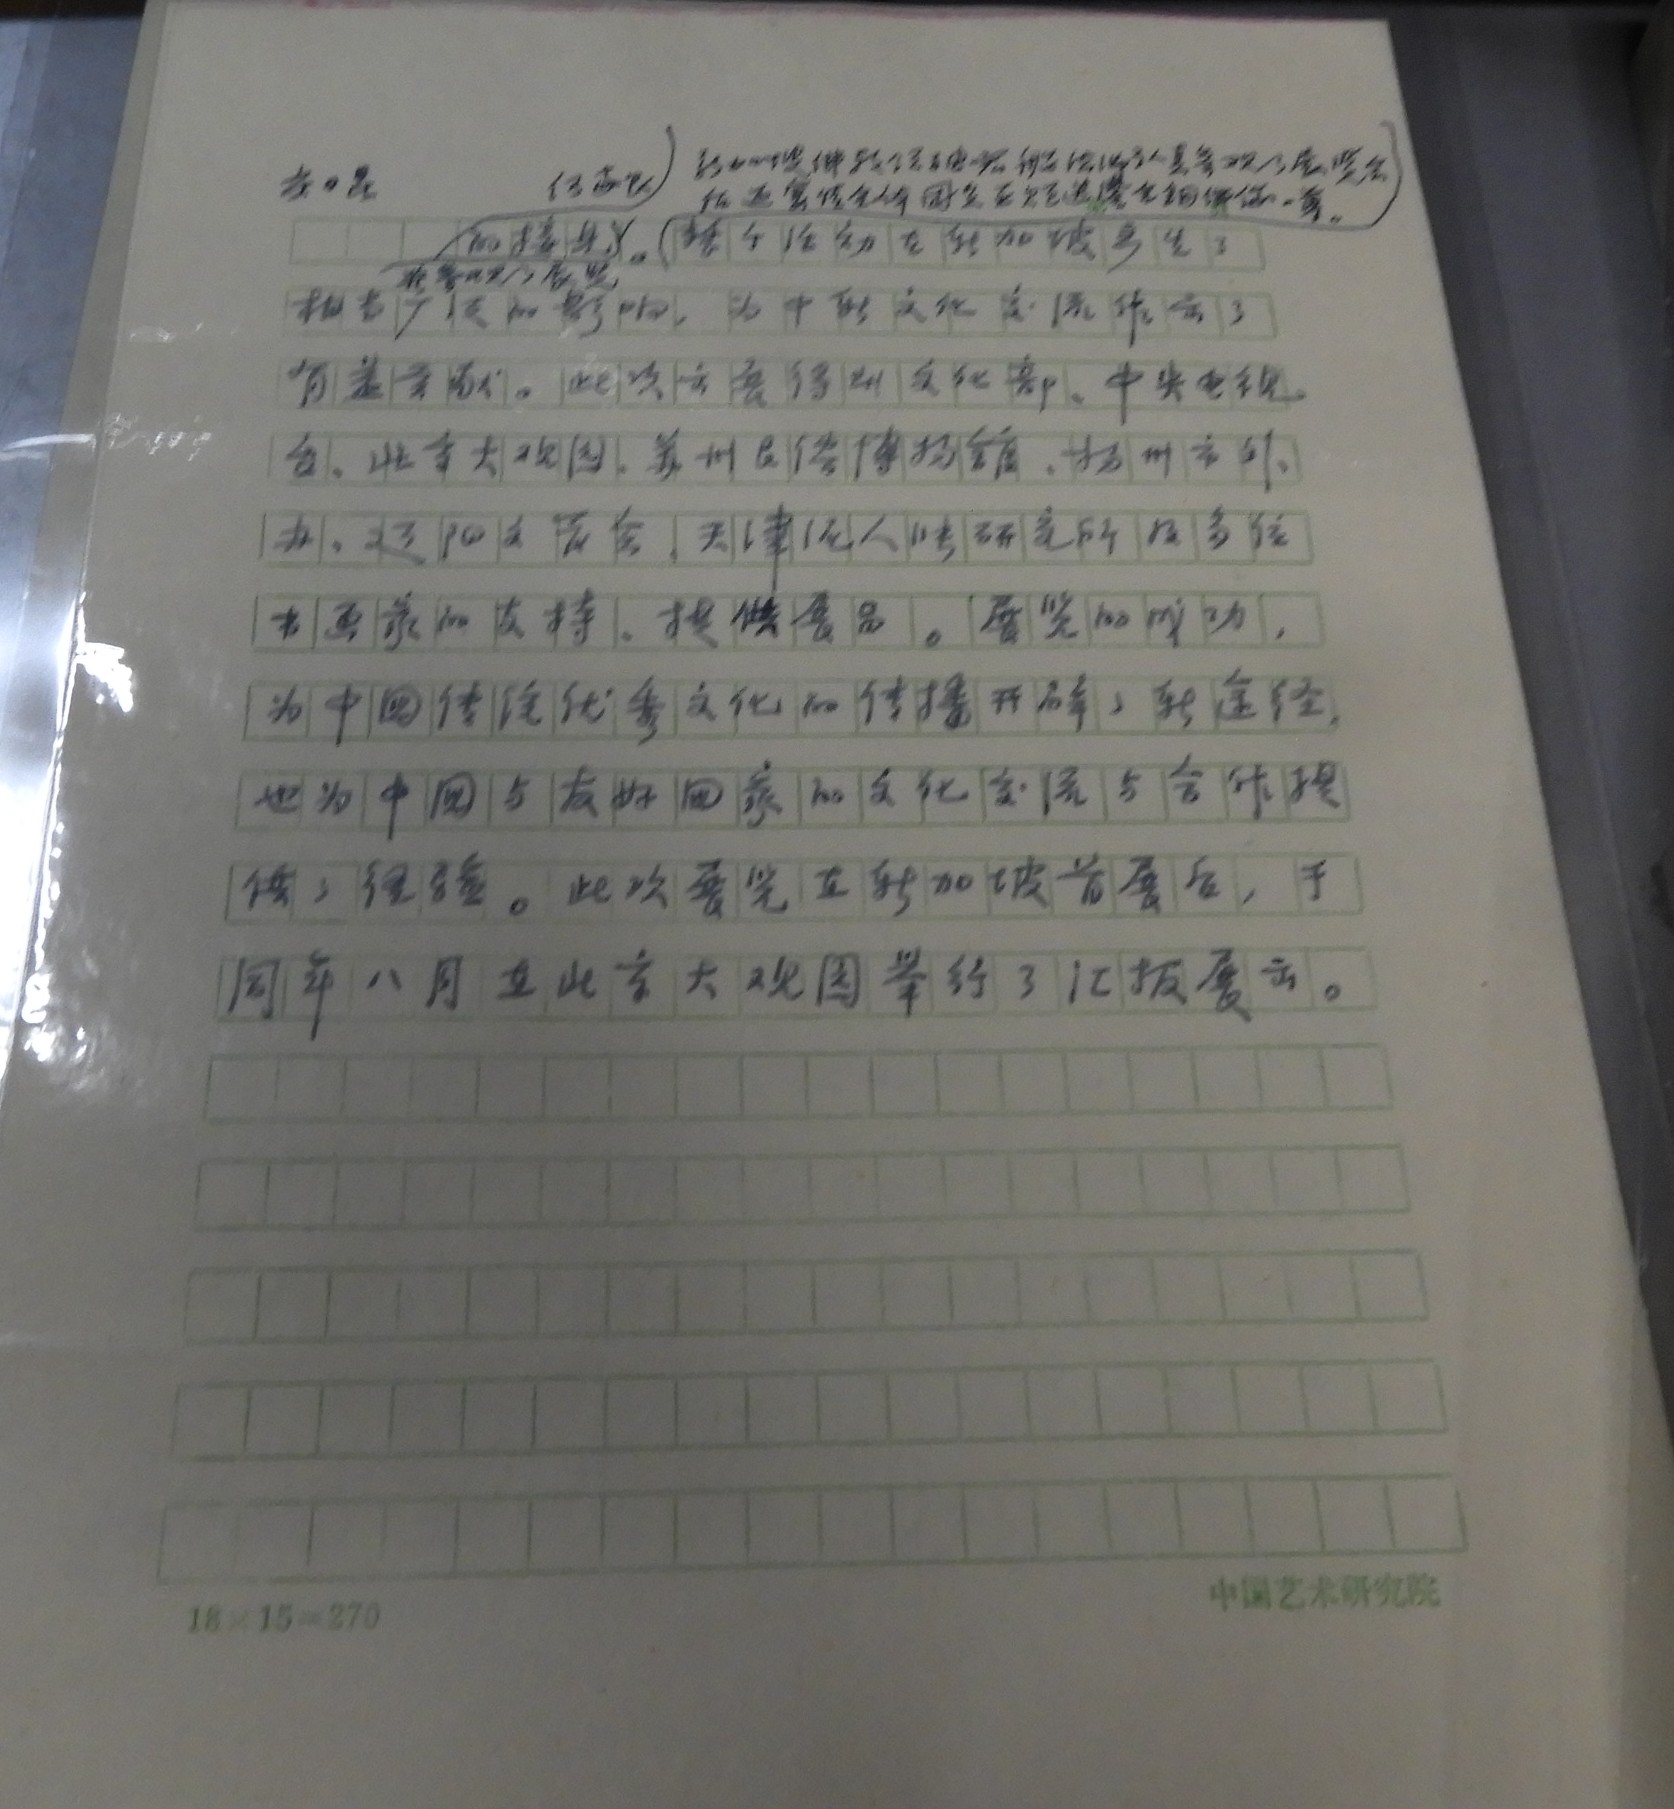 的接见）。（整个活动在新加坡产生了
相当广泛的影响，为中新文化交流作出了
有益贡献。此次出展得到文化部、中央电视
台、北京大观园、苏州民俗博物馆、扬州市外
办、辽阳文管会、天津泥人张研究所及多位
书画家的支持、提供展品。展览的成功，
为中国传统优秀文化的传播开辟了新途径，
也为中国与友好国家的文化交流与合作提
供了经验。此次展览在新加坡首展后，于
同年八月在北京大观园举行了汇报展出。
18×15=270
中国艺术研究院